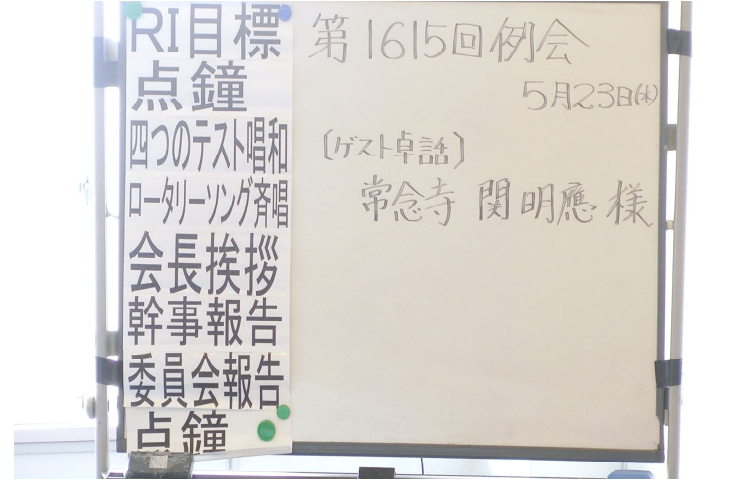 RI目標
点鐘
四つのテスト唱和
ロータリーソング斉唱
会長挨拶
幹事報告
委員会報告
点鐘
第1615回例会
5月23日(木)
〔ゲスト卓話〕
常念寺 関明應様